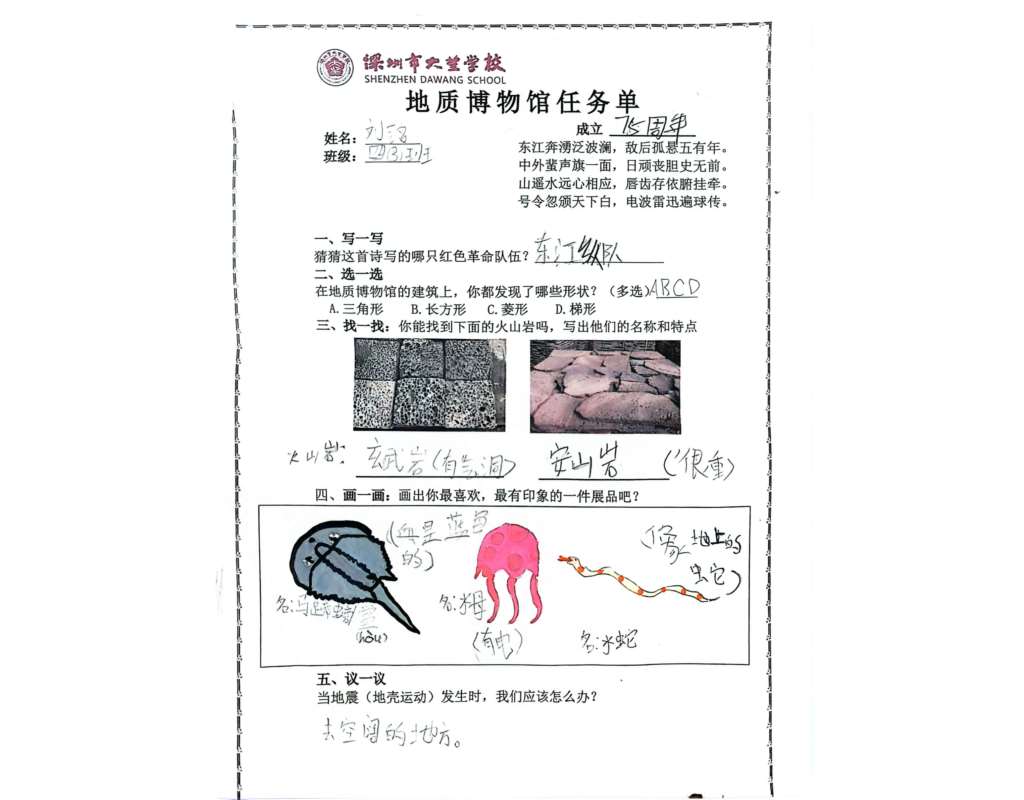 深圳市大望学校
SHENZHEN DAWANG SCHOOL
地质博物馆任务单
姓名：刘
班级：四(3)班
成立 75周年
东江奔湧泛波澜，敌后孤悬五有年。
中外蜚声旗一面，日顽丧胆史无前。
山遥水远心相应，唇齿存依腑挂牵。
号令忽颁天下白，电波雷迅遍球传。
一、写一写
猜猜这首诗写的哪只红色革命队伍？东江纵队
二、选一选
在地质博物馆的建筑上，你都发现了哪些形状？（多选）ABCD
A.三角形 B.长方形 C.菱形 D.梯形
三、找一找：你能找到下面的火山岩吗，写出他们的名称和特点
火山岩：玄武岩(有气洞) 安山岩 (很重)
四、画一画：画出你最喜欢，最有印象的一件展品吧？
(血是蓝色的)
名:马蹄蟹
(hòu)
名:水母
(有电)
(像地上的虫它)
名:水蛇
五、议一议
当地震（地壳运动）发生时，我们应该怎么办？
去空阔的地方。